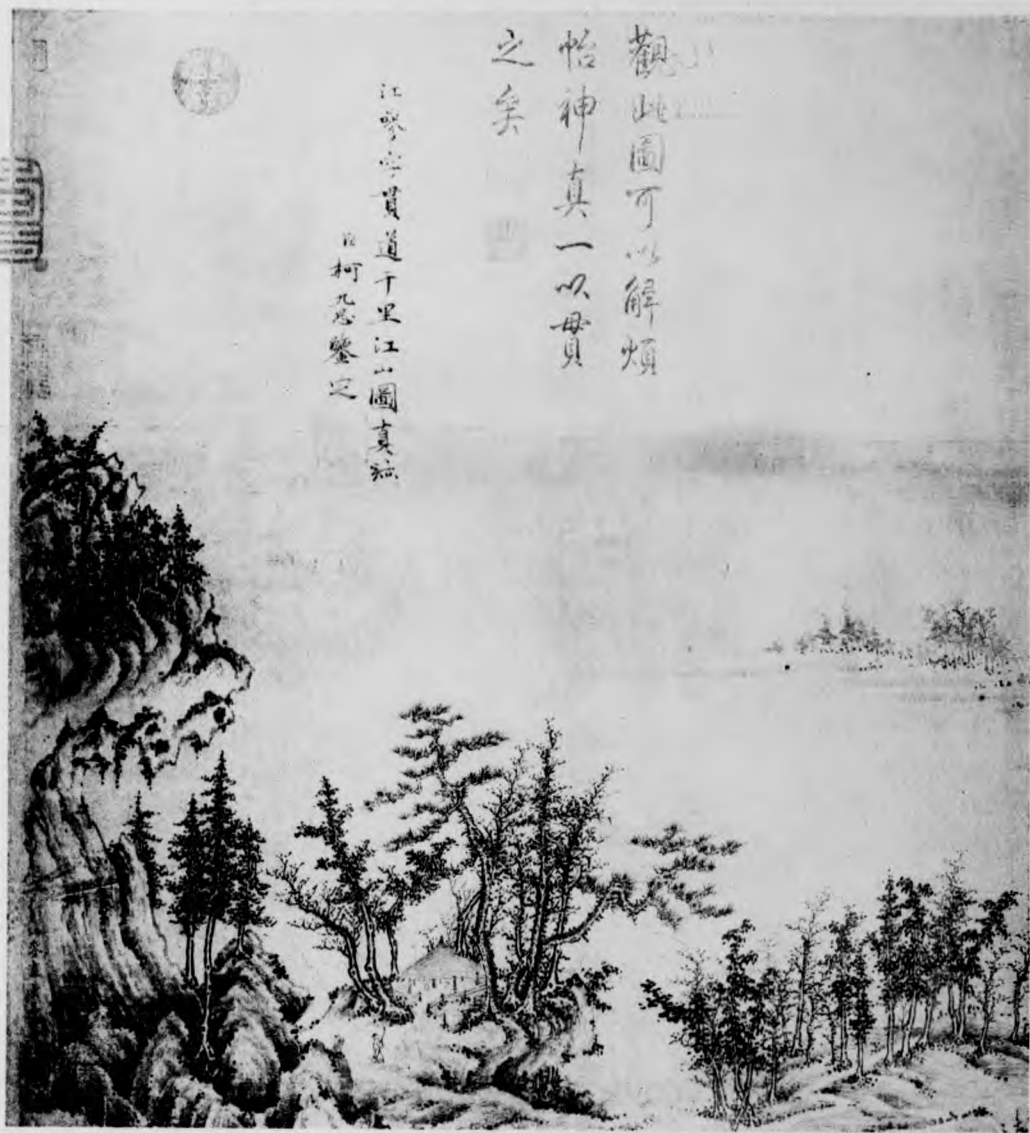 觀此圖可以解煩
怡神真一以貫
之矣
江參字貫道千里江山圖真跡
臣柯九思鑒定